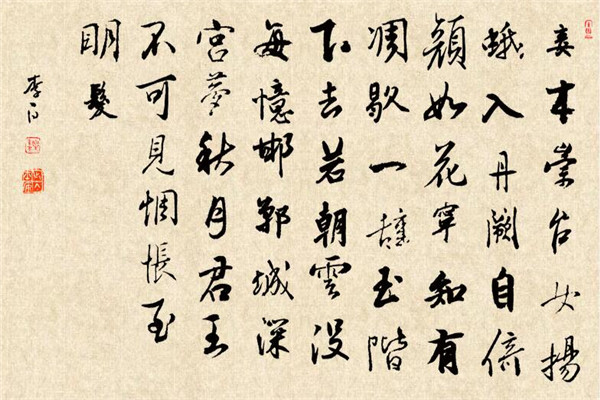 妾本崇台女揚
蛾入丹闕自倚
顏如花寧知有
凋歇一辭玉階
下去若朝雲没
每憶邯鄲城深
宮夢秋月君王
不可見惆悵至
明髮
李白